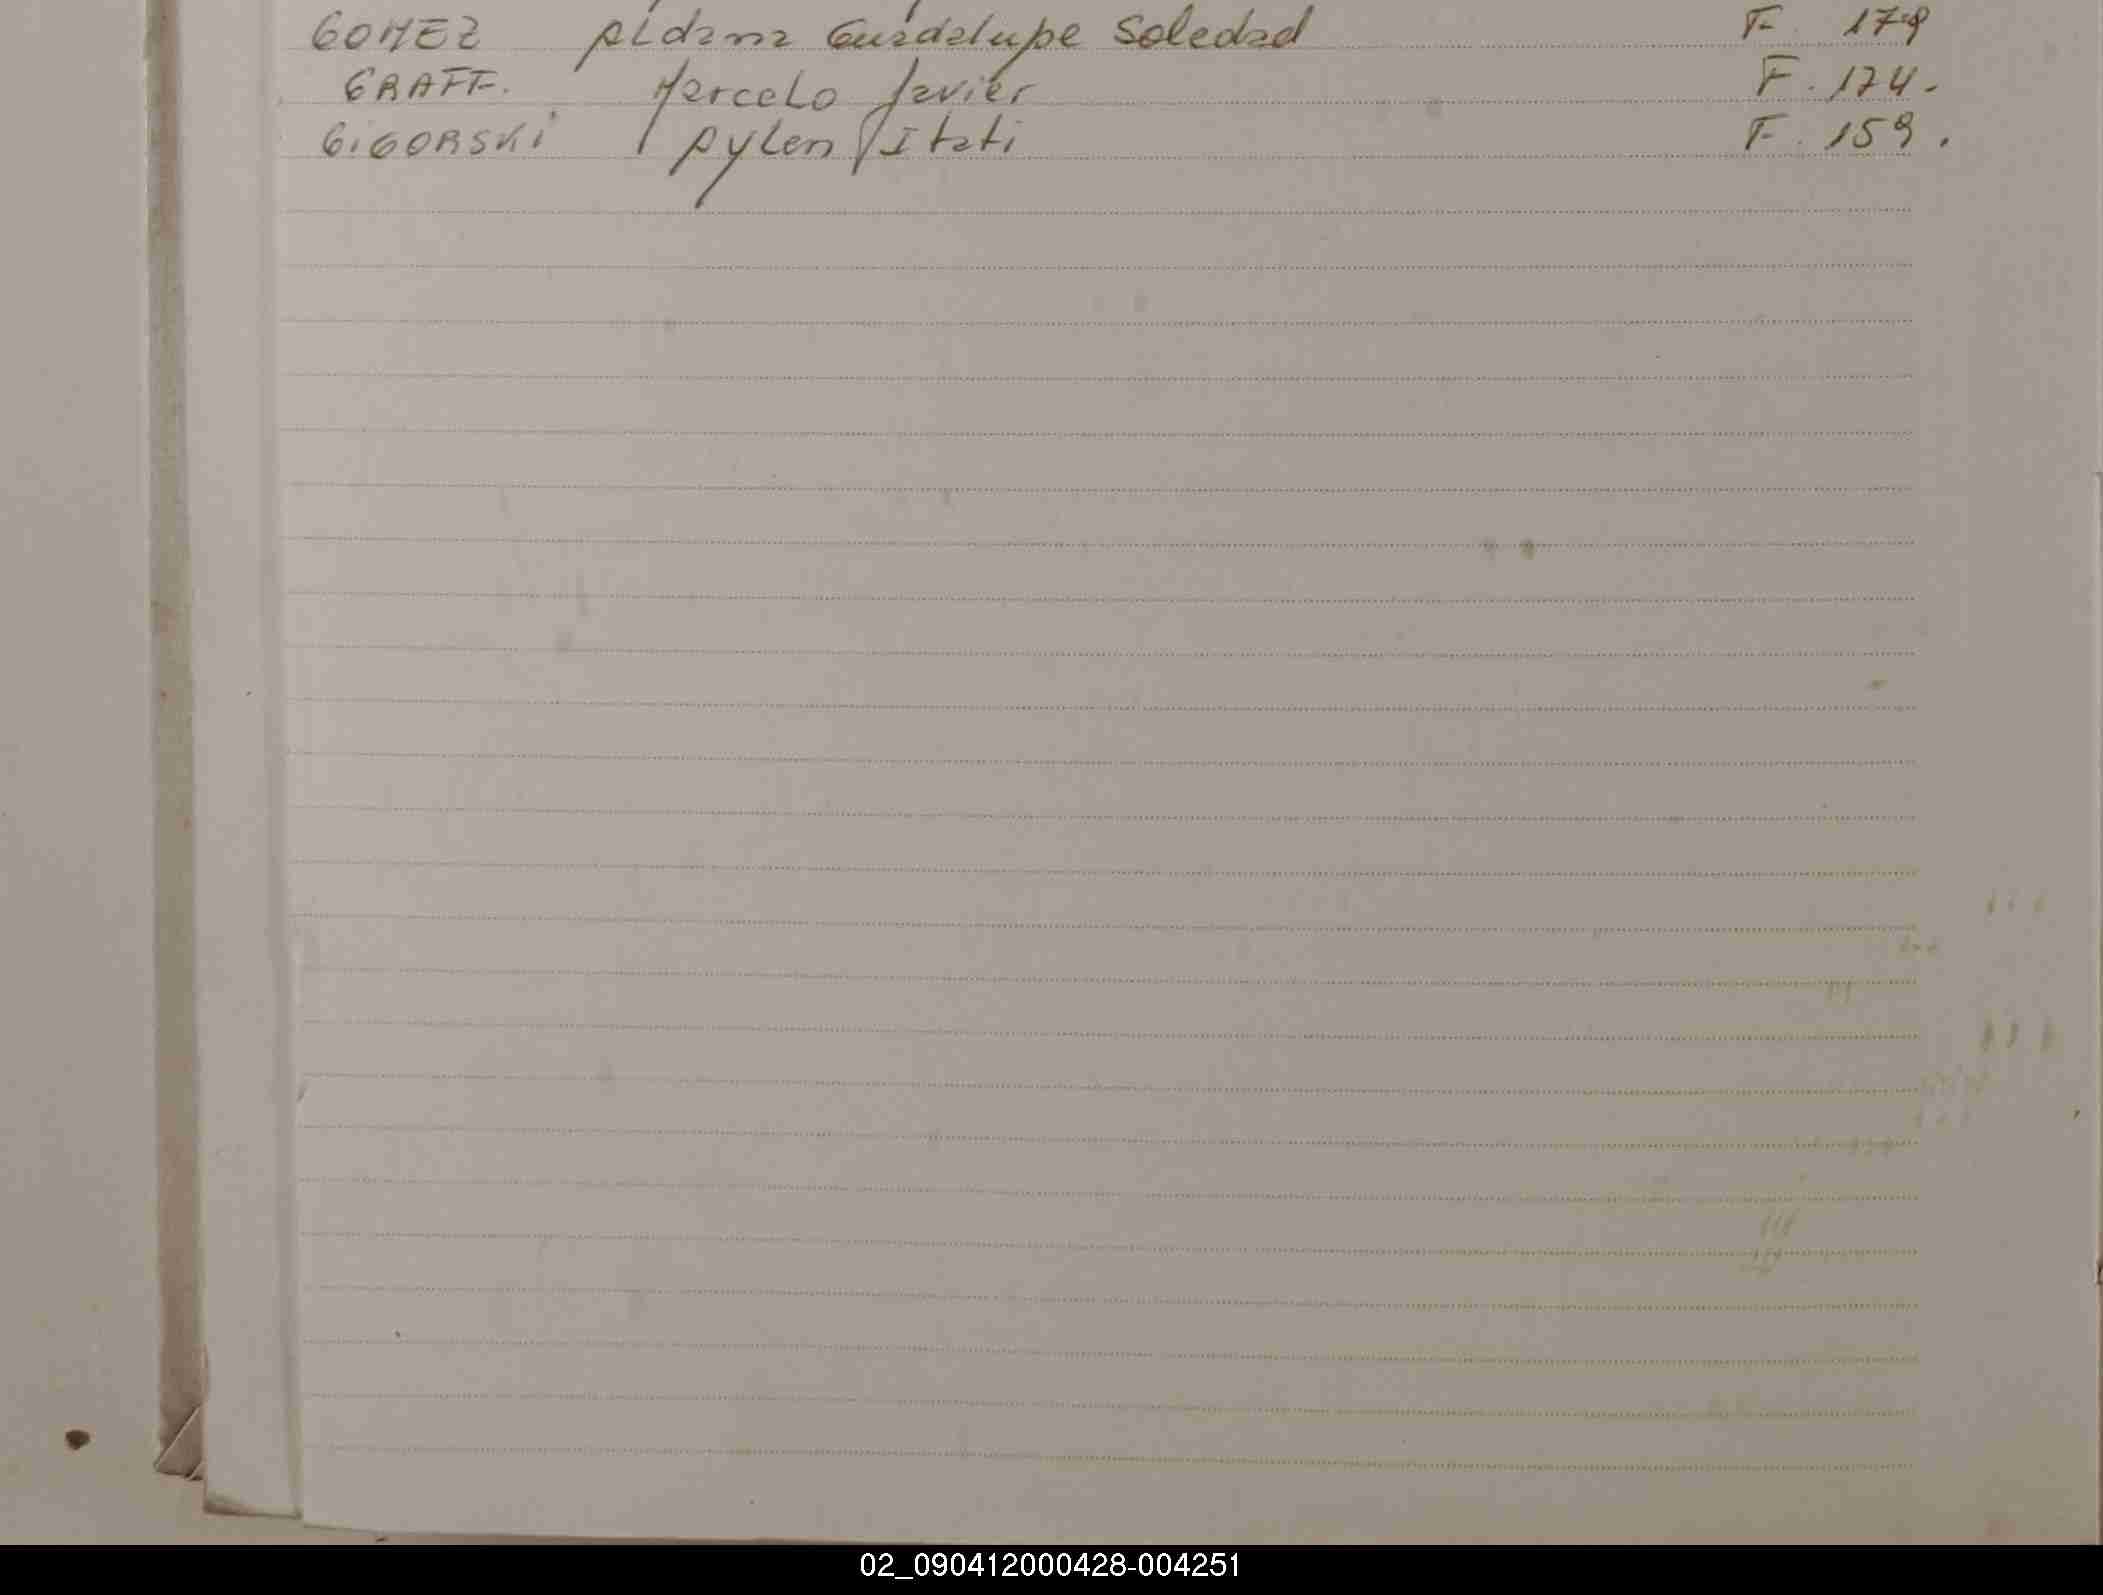 GOMEZ Aldana Guadalupe Soledad F. 179
GRAFF. Marcelo Javier F. 174.
GIGORSKI Aylen Itati F. 159.
02_090412000428-004251